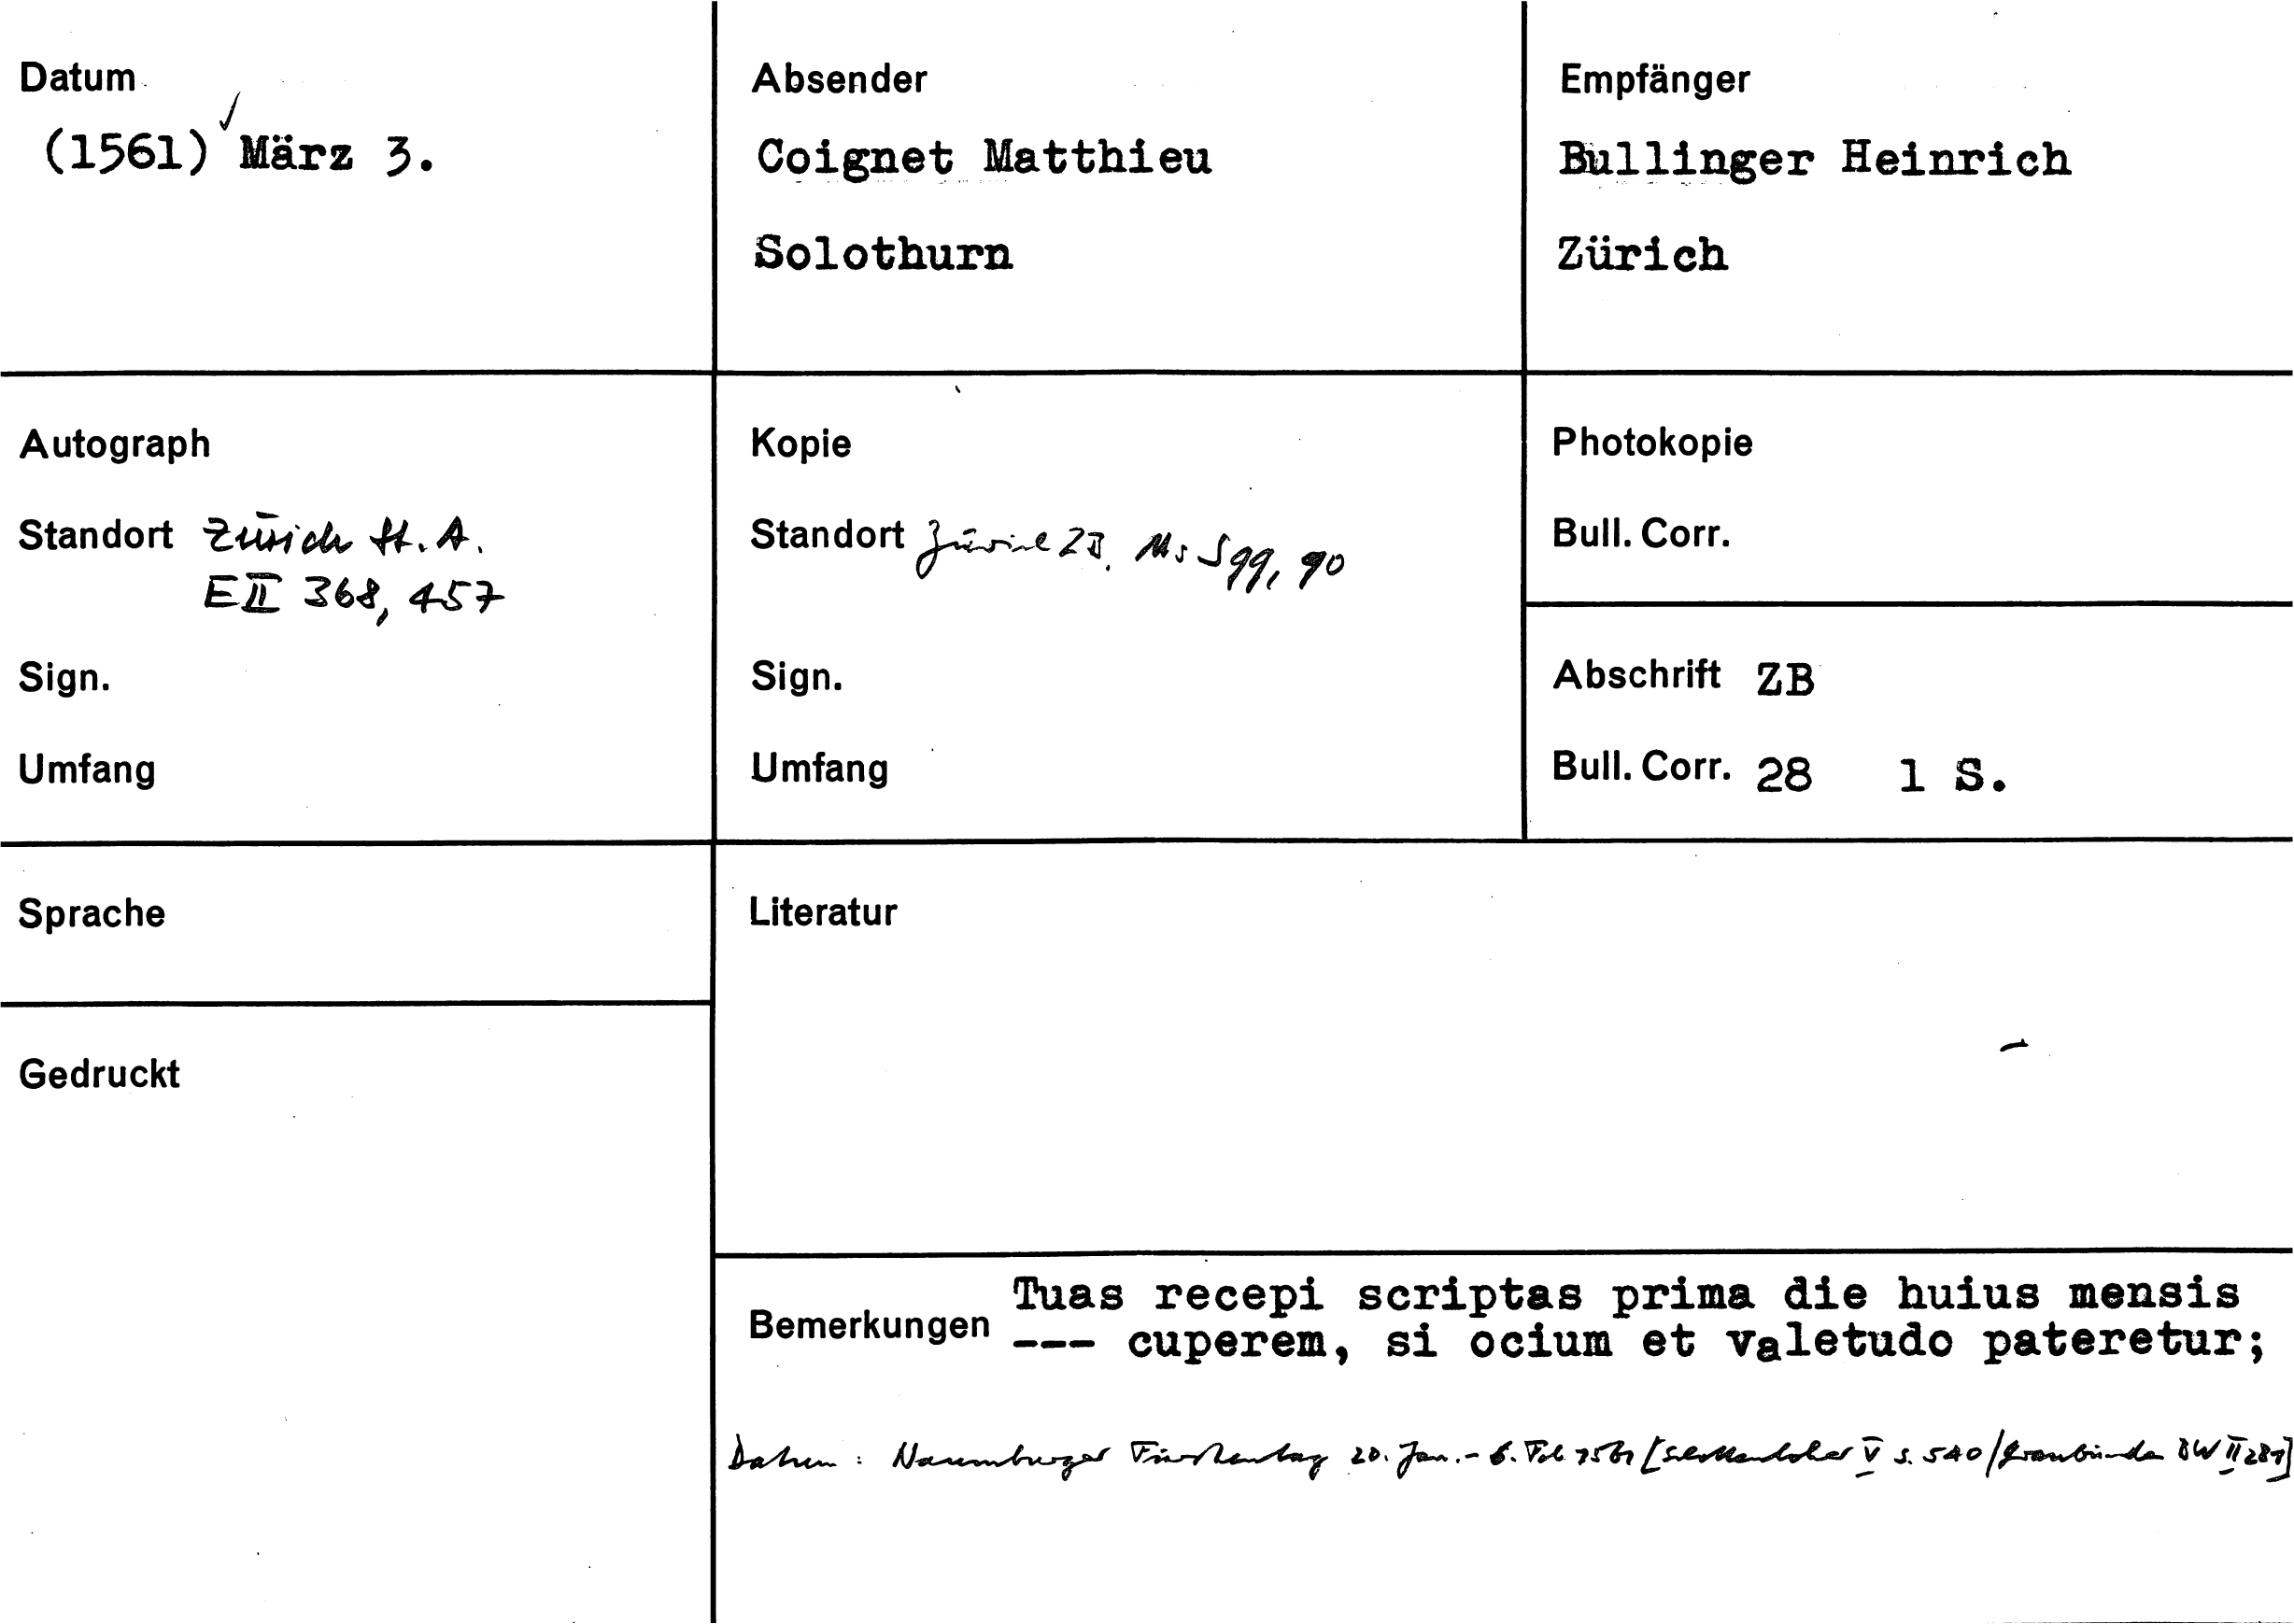 Datum
(1561) März 3.
Absender
Coignet Matthieu
Solothurn
Empfänger
Bullinger Heinrich
Zürich
Autograph
Standort Zürich St. A.
E II 368, 457
Sign.
Umfang
Kopie
Standort Zürich ZB. Ms S 99, 90
Sign.
Umfang
Photokopie
Bull. Corr.
Abschrift ZB
Bull. Corr. 28 1 S.
Sprache
Literatur
Gedruckt
Bemerkungen Tuas recepi scriptas prima die huius mensis
--- cuperem, si ocium et valetudo pateretur;
Datum: Naumburger Fürstentag 20. Jan. - 8. Feb 1561 [Schottenloher V S. 540/Graubünden BW II 281]